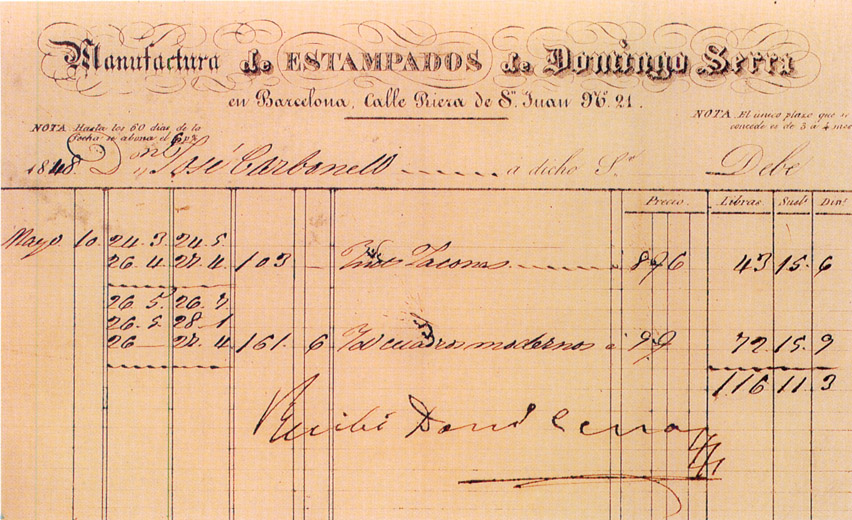 Manufactura de ESTAMPADOS de Domingo Serra
en Barcelona, Calle Riera de Sn. Juan No. 21.
NOTA. Hasta los 60 dias de la
fecha se abona el 6 p%
NOTA. El único plazo que se
concede es de 3 a 4 mes
1848. Dn. José Carbonell a dicho Sr. Debe
Precio. Libras. Suels. Dins.
Mayo 10. 24.3. 24.5
26.4. 27.4. 103 8 6 43 15. 6
26.5. 26.7
26.5. 28-1
26- 27.4 161 6 cuadros modernos a 9 9 72 15. 9
116 11. 3
Recibí Domo. Serra